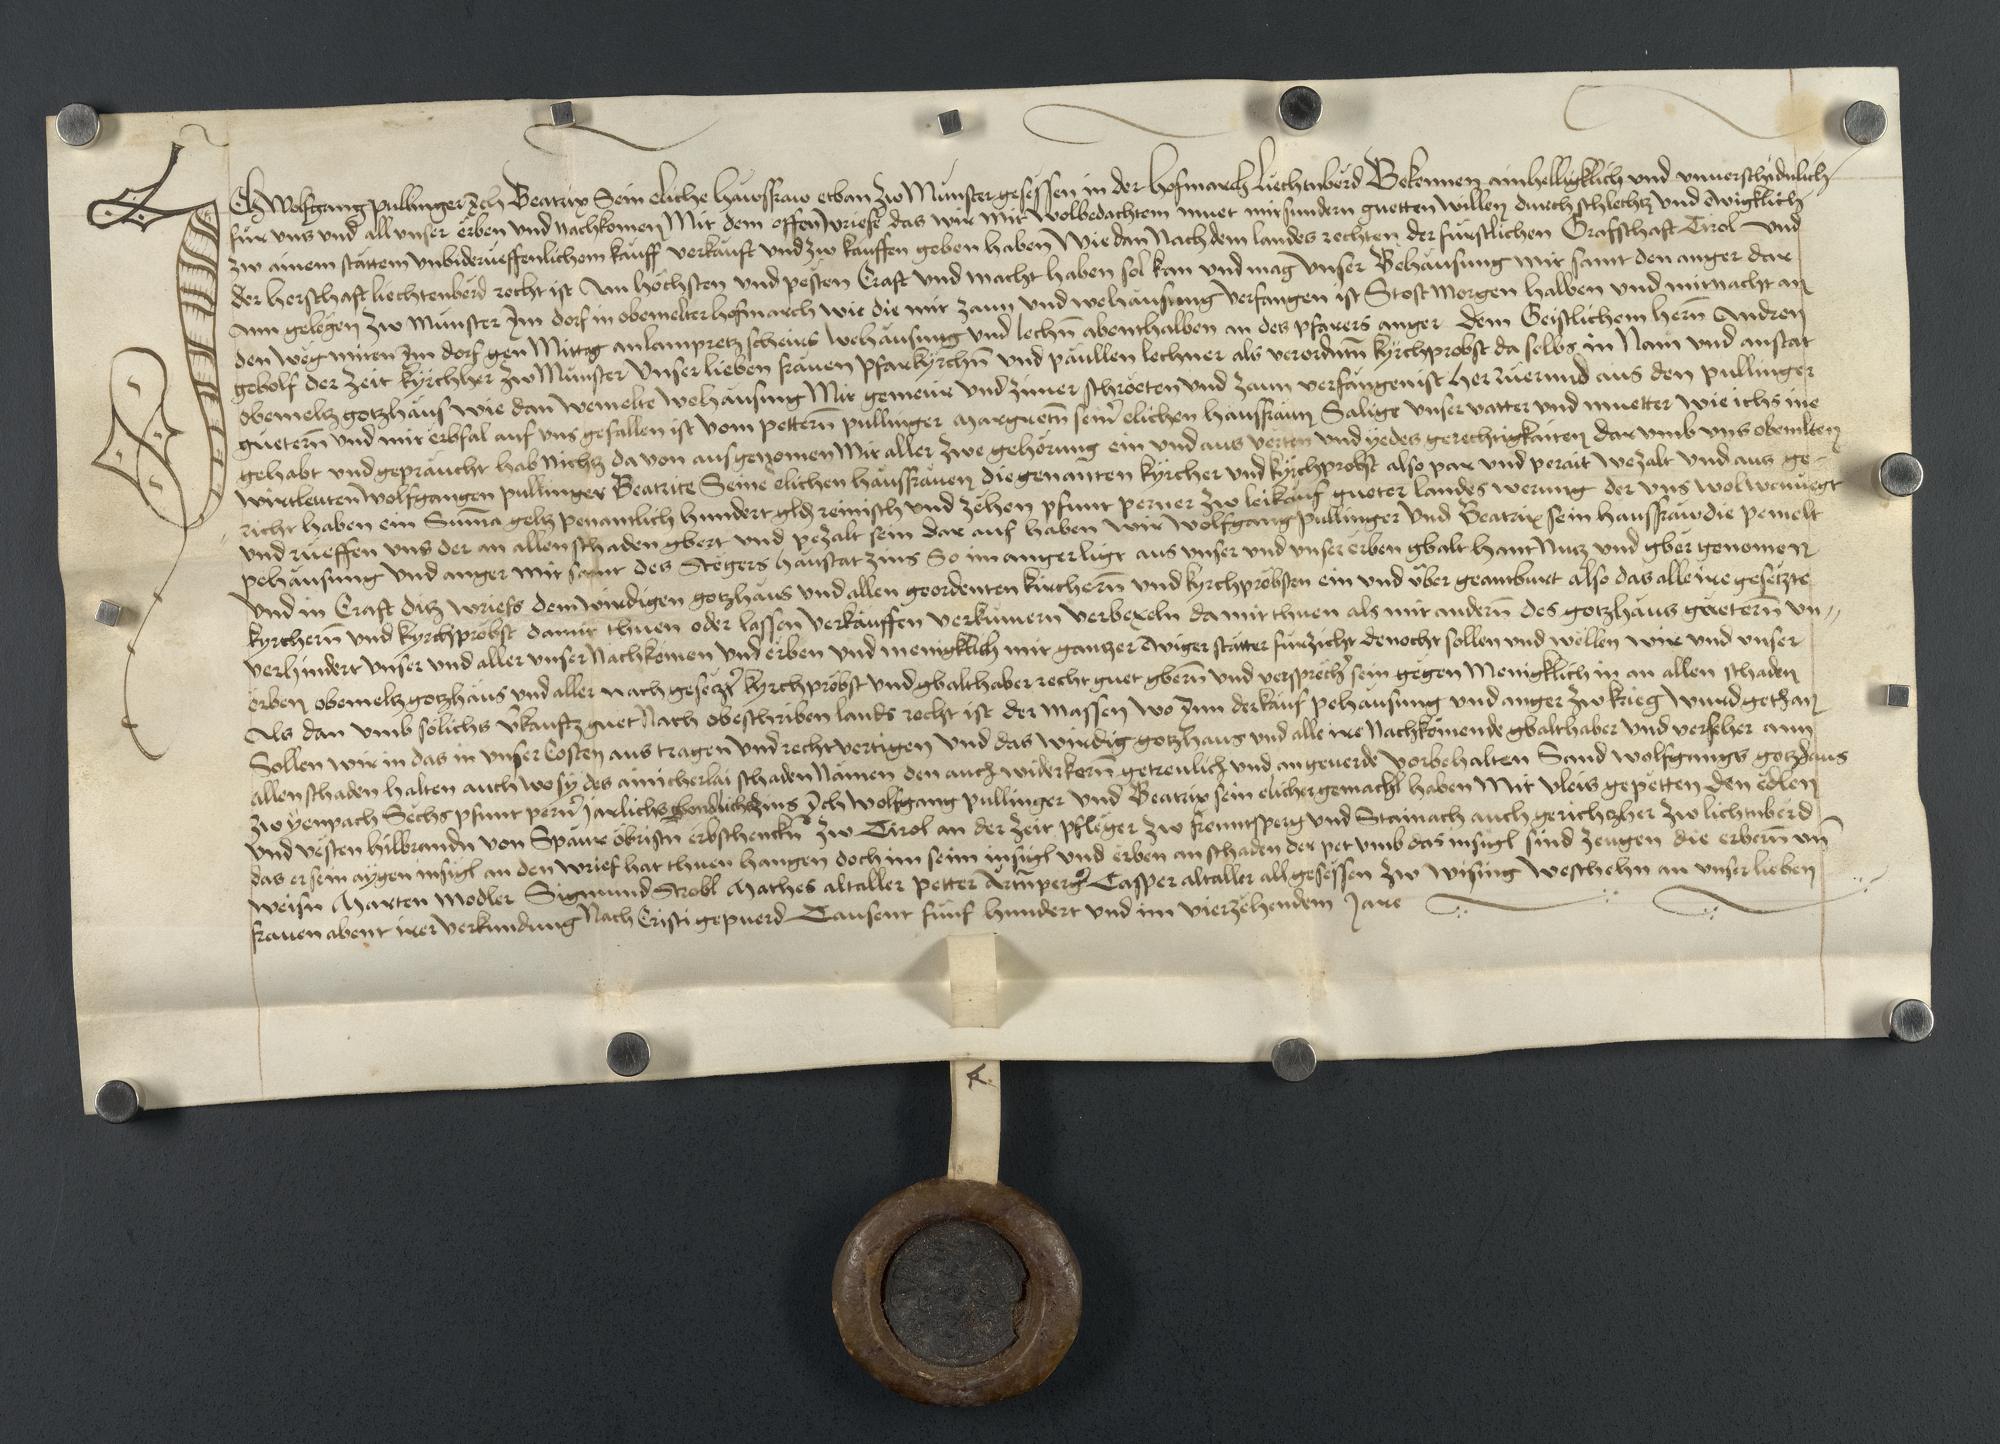 Ich Wolfgang pullinger Ich Beatrix Sein eliche hawsfraw etban zw Munster gesessen in der hofmarch Liechtnberd Bekennen ainhelligklich und unverschidnlich
für uns und all unser erben und nachkomen Mit dem offen wriefe das wir mit wolbedachtem muet mit sundern guetten willen durch schlechtz und ewigklich
zw ainem stättem unbiderueffenlichem kauff verkauft und zw kauffen geben haben Wie dan nach dem landes rechten der fürstlichen Grafschaft Tirol und
der herschaft liechtenberd recht ist Am höchsten und pesten Craft und macht haben sol kan und mag unser Behausung mit samt den anger dar
ann gelegen zw munster Im dorf in obemelter hofmarch wie die mit zaun und wehausung verfangen ist Stost morgen halben und mitnacht an
den weg miten Im dorf gen Mittag an lampretz scheits wehausung und lechn abenthalben an des pfarers anger dem Geistlichem hern Andren
gebolf der zeit kyrchher zw Munster unser lieben frauen pfarkyrchn und paullen lechner als verordntn kyrchprobst da selbs in Nam und anstat
obemeltz gotzhaus wie dan wemelte wehausung Mit gemeur und zimer schroeten und zaun verfangen ist her rüerund aus den pullinger
guetern und mit erbfal auf uns gefallen ist vom pettern pullinger Margretn seinr elichen hausfraun Salige unser vatter und muetter wie ichs nie
gehabt und gepraucht hab nichtz da von ausgenomen Mit aller zwe gehörung ein und aus verten und yedes gerechtigkaiten dar umb uns obemlten
wirtleuten wolfgangen pullinger Beatrice Seine elichen hausfrauen die genanten kyrcher und kyrchprobst also par und perait wezalt und aus ge-
richt haben ein Summa geltz penamtlich hundert gldn reinisch und zehen pfunt perner zw leikauf gueter landes werung der uns wol wenüegt
und rueffen uns der an allen schaden gbert und pezalt sein dar auf haben wir Wolfgang pullinger und Beatrix sein hausfraw die pemelt
pehausung und anger mit samt des stegers haustat zins So im anger ligt aus unser und unser erben gbalt hant Nutz und gber genomen
und in Craft ditz wriefs dem wirdigen gotzhaus und allen geordenten kirchern und kyrchpröbsten ein und über geantburt also das alle ire gesetzte
kyrchern und kyrchpröbst damit thuen oder lassen verkauffen verkumern verbexeln da mit thuen als mit andern des gotzhaus guetern un-
verhindert unser und aller unser Nachkomen und erben und menigklich mit gantzer ewiger stätter fürzicht denocht sollen und wellen wir und unser
erben obemeltz gotzhaus und aller nach gesetztr kyrchpröbst und gbalthaber recht guet gbern und versprechr sein gegen Menigklich in an allen schaden
Als dan umb solichs vkauftz guet Nach obeschriben lands recht ist der massen wo Inn der kauf pehausung und anger zw krieg wurd gethan
Sollen wir in das in unser Costen aus tragen und recht vertigen und das wirdig gotzhaus und alle ire Nachkomende gbalthaber und verseher ann
allen schaden halten auch wo sy des ainicherlai schaden Namen den auch widerkern getreulich und angeuerde vorbehalten Sand wolfgangs gotzhaus
zw yenpach Sechs pfunt pernr Jarlichs zins Ich wolfgang pullinger und Beatrix sein elicher gemachl haben Mit vleis gepetten den edlen
und vesten hilbrandn von Spaur obristn erbschenckn zw Tirol an der zeit pfleger zw freuntsperg und Stainach auch gerichtzher zw lichtnberd
das er sein aygen insigl an den wrief hat thuen hangen doch im seim insigl und erben an schaden der pet umb das insigl sind zeugen die erbern un
weisn Marten Modler Sigmund strobl Mathes altaller petter Artnpergr Casper altaller all gesessen zw wising weschehn an unser lieben
frauen abent irer verkundung Nach Cristi gepuerd Tausent funf hundert und im vierzehendem Jare
A.